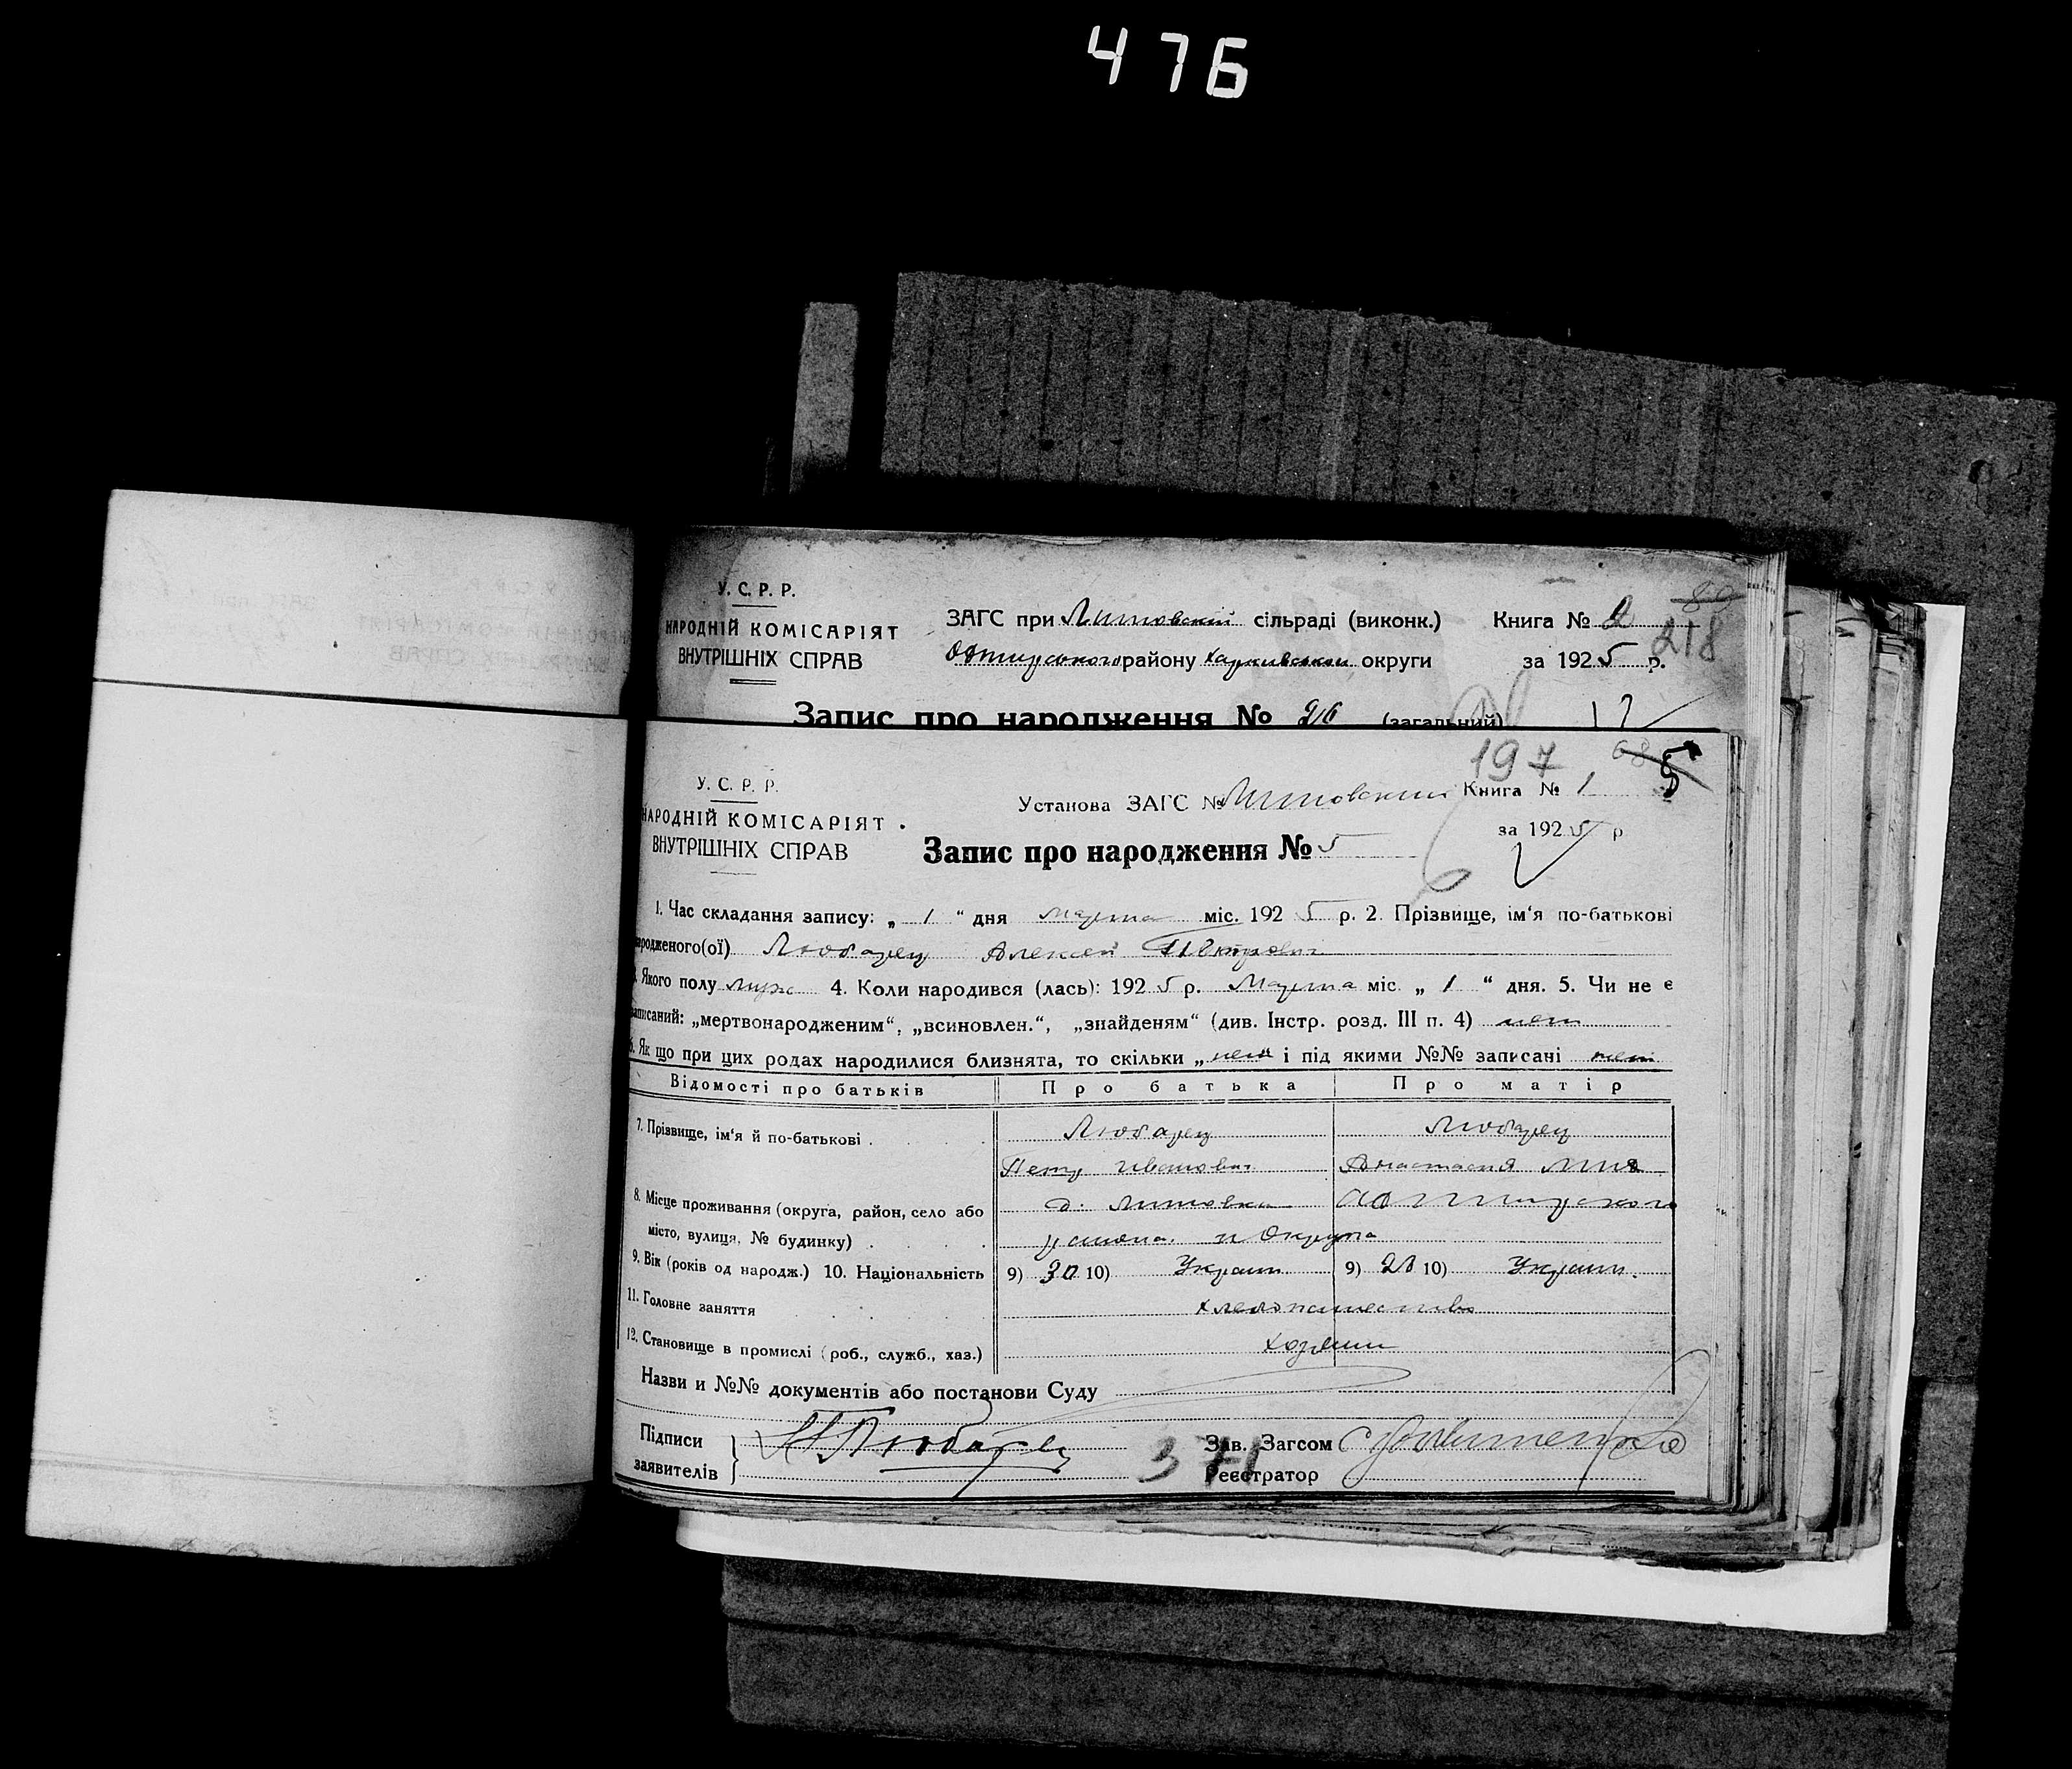 476
У. С. Р. Р.
НАРОДНІЙ КОМІСАРІЯТ
ВНУТРІШНІХ СПРАВ
ЗАГС при Литовский сільраді (виконк.)
району Харкивской округи
Книга № 2
80
218
за 1925 р.
Запис про народження № 26 (загальний)
197
68
5
У. С. Р. Р.
НАРОДНІЙ КОМІСАРІЯТ
ВНУТРІШНІХ СПРАВ
Установа ЗАГС № Литовский Книга № 1
за 1925 р
Запис про народження № 5
1. Час складання запису: „ 1 “ дня Марта міс. 1925 р. 2. Прізвище, ім‘я по-батькові
народженого(ої) Любарец Алексей Петрович
Якого полу муж 4. Коли народився (лась): 1925 р. Марта міс. „ 1 “ дня. 5. Чи не є
записаний: „мертвонародженим“, „всиновлен.“, „знайденям“ (див. Інстр. розд. III п. 4) нет
6. Як що при цих родах народилися близнята, то скільки „нет“ і під якими №№ записані нет
Відомості про батьків Про батька Про матір
7. Прізвище, ім‘я й по-батькові . Любарец Любарец
Петр Иванович Анастасия
8. Місце проживання (округа, район, село або д. Литовка
місто, вулиця, № будинку) . района и Округа
9. Вік (років од народж.) 10. Національність 9) 30 10) Украин 9) 28 10) Украин.
11. Головне заняття хлебопашество
12. Становище в промислі (роб., служб., хаз.) хозяин
Назви и №№ документів або постанови Суду
Підписи
заявителів
Любарец
371
Зав. Загсом
Реєстратор